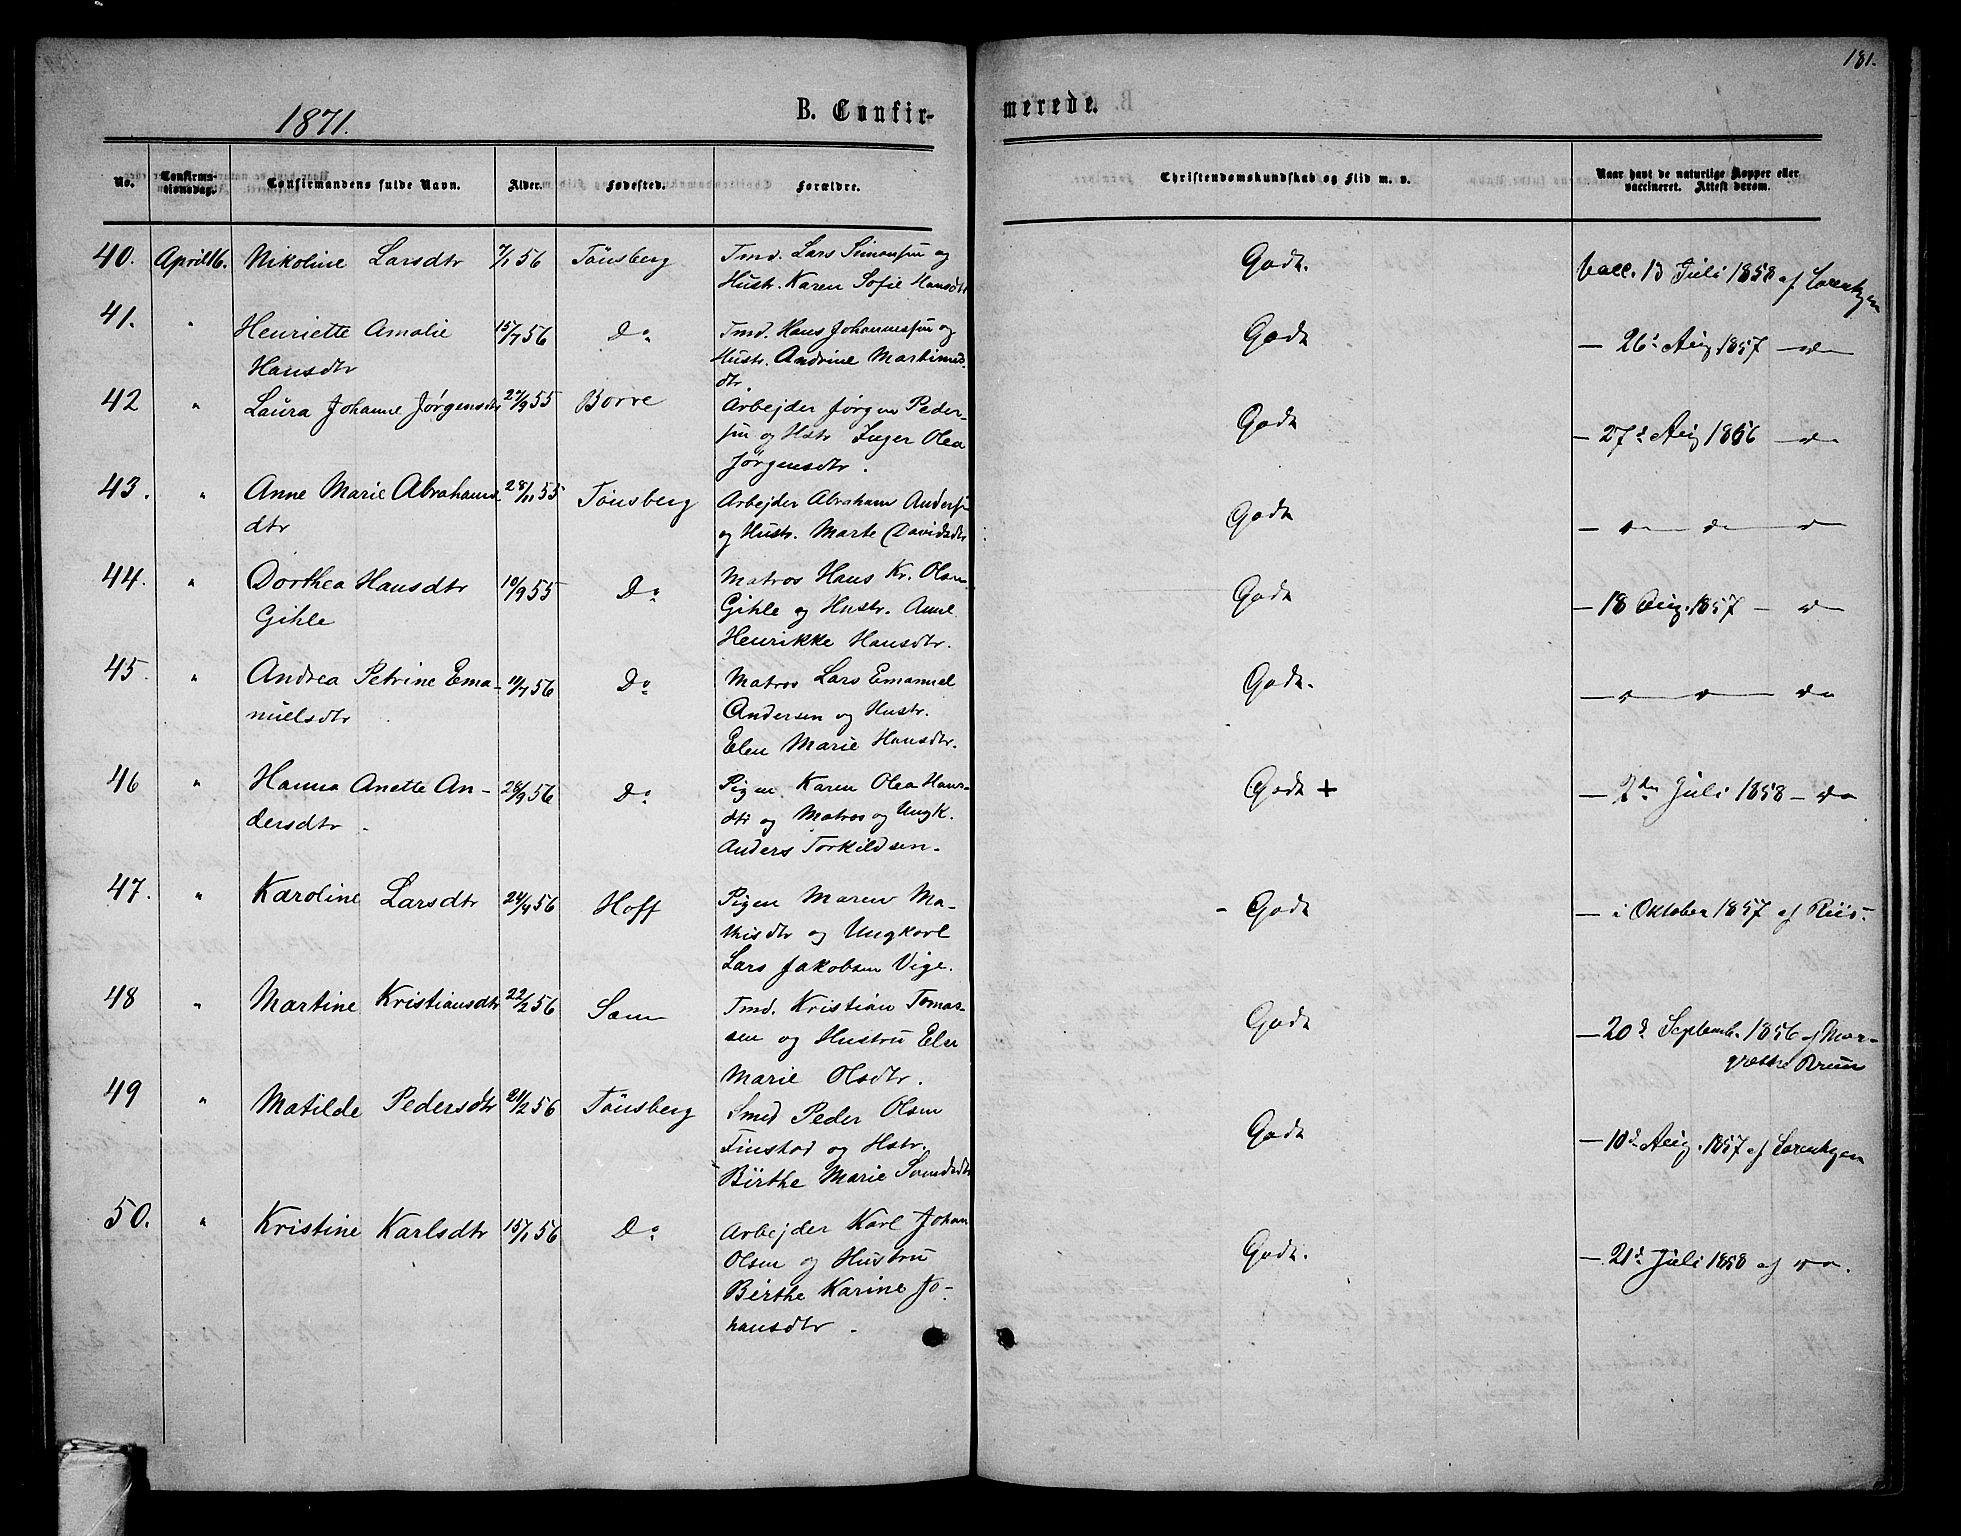 181.
1871.
B. Confir-
merede.
No.
Confirma-
tionsdag.
Confirmandens fulde Navn.
Alder.
Fødested.
Forældre.
Christendomskundskab og Flid m. v.
Naar havt de naturlige Kopper eller
vaccineret. Attest derom.
40. April 16. Nikoline Larsdtr 7/1 56 Tönsberg Tmd. Lars Simonsen og
Hustr. Karen Sofie Hansdtr
Godt. Vacc. 13 Juli 1858 af Lorentzen
41. " Henriette Amalie 15/7 56 Do Tmd. Hans Johannessen og
Hansdtr Hustr. Andrine Martinus
dtr.
Godt — 26d Aug 1857 — do
42 " Laura Johanne Jørgensdtr 27/9 55 Borre Arbejder Jørgen Peder-
sen og Hstr Inger Olea
Jørgensdtr.
Godt — 27d Aug 1856 — do
43. " Anne Marie Abrahams 28/11 55 Tönsberg Arbejder Abraham Andersen
dtr og Hustr. Marte Davidsdtr
Godt
44. " Dorthea Hansdtr 10/9 55 Do Matros Hans Kr. Olsen
Gihle Gihle og Hustr. Anne
Henrikke Hansdtr.
Godt — 18 Aug. 1857 —
45. " Andrea Petrine Ema- 11/7 56 Do Matros Lars Emanuel
nuelsdtr Andersen og Hustr.
Elen Marie Hansdtr.
Godt. do
46 " Hanna Anette An- 28/9 56 Do Pigen Karen Olea Hans-
dersdtr. dtr og Matros og Ungk.
Anders Torkildsen.
Godt + — 2den Juli 1858 — do
47. " Karoline Larsdtr 24/4 56 Hoff Pigen Maren Ma-
thisdtr og Ungkarl
Lars Jakobsen Vige.
- Godt — i Oktober 1857 af Riis-
48 " Martine Kristiansdtr 22/2 56 Sem Tmd. Kristian Tomas-
sen og Hustru Elen
Marie Olsdtr.
Godt — 20d Septemb. 1856 af Mar-
grethe Bruun
49 " Matilde Pedersdtr 21/2 56 Tönsberg Smed Peder Olsen
Finstad og Hstr.
Birthe Marie Svendsdtr
Godt — 10d Aug. 1857 af Lorentzen
50. " Kristine Karlsdtr 15/1 56 Do Arbejder Karl Johan
Olsen og Hustru
Birthe Karine Jo-
hansdtr.
Godt. — 21d Juli 1858 af do.